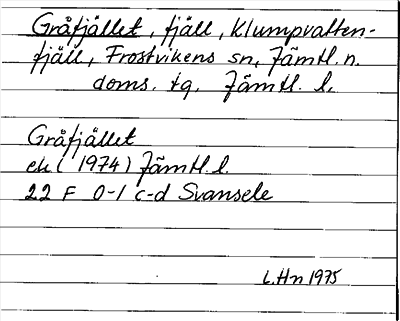 Gråfjället, fjäll, Klumpvatten-
fjäll, Frostvikens sn, Jämtl. n.
doms. tg. Jämtl. l.
Gråfjället
ek (1974) Jämtl. l.
22 F 0-1 c-d Svansele
L.Hn 1975